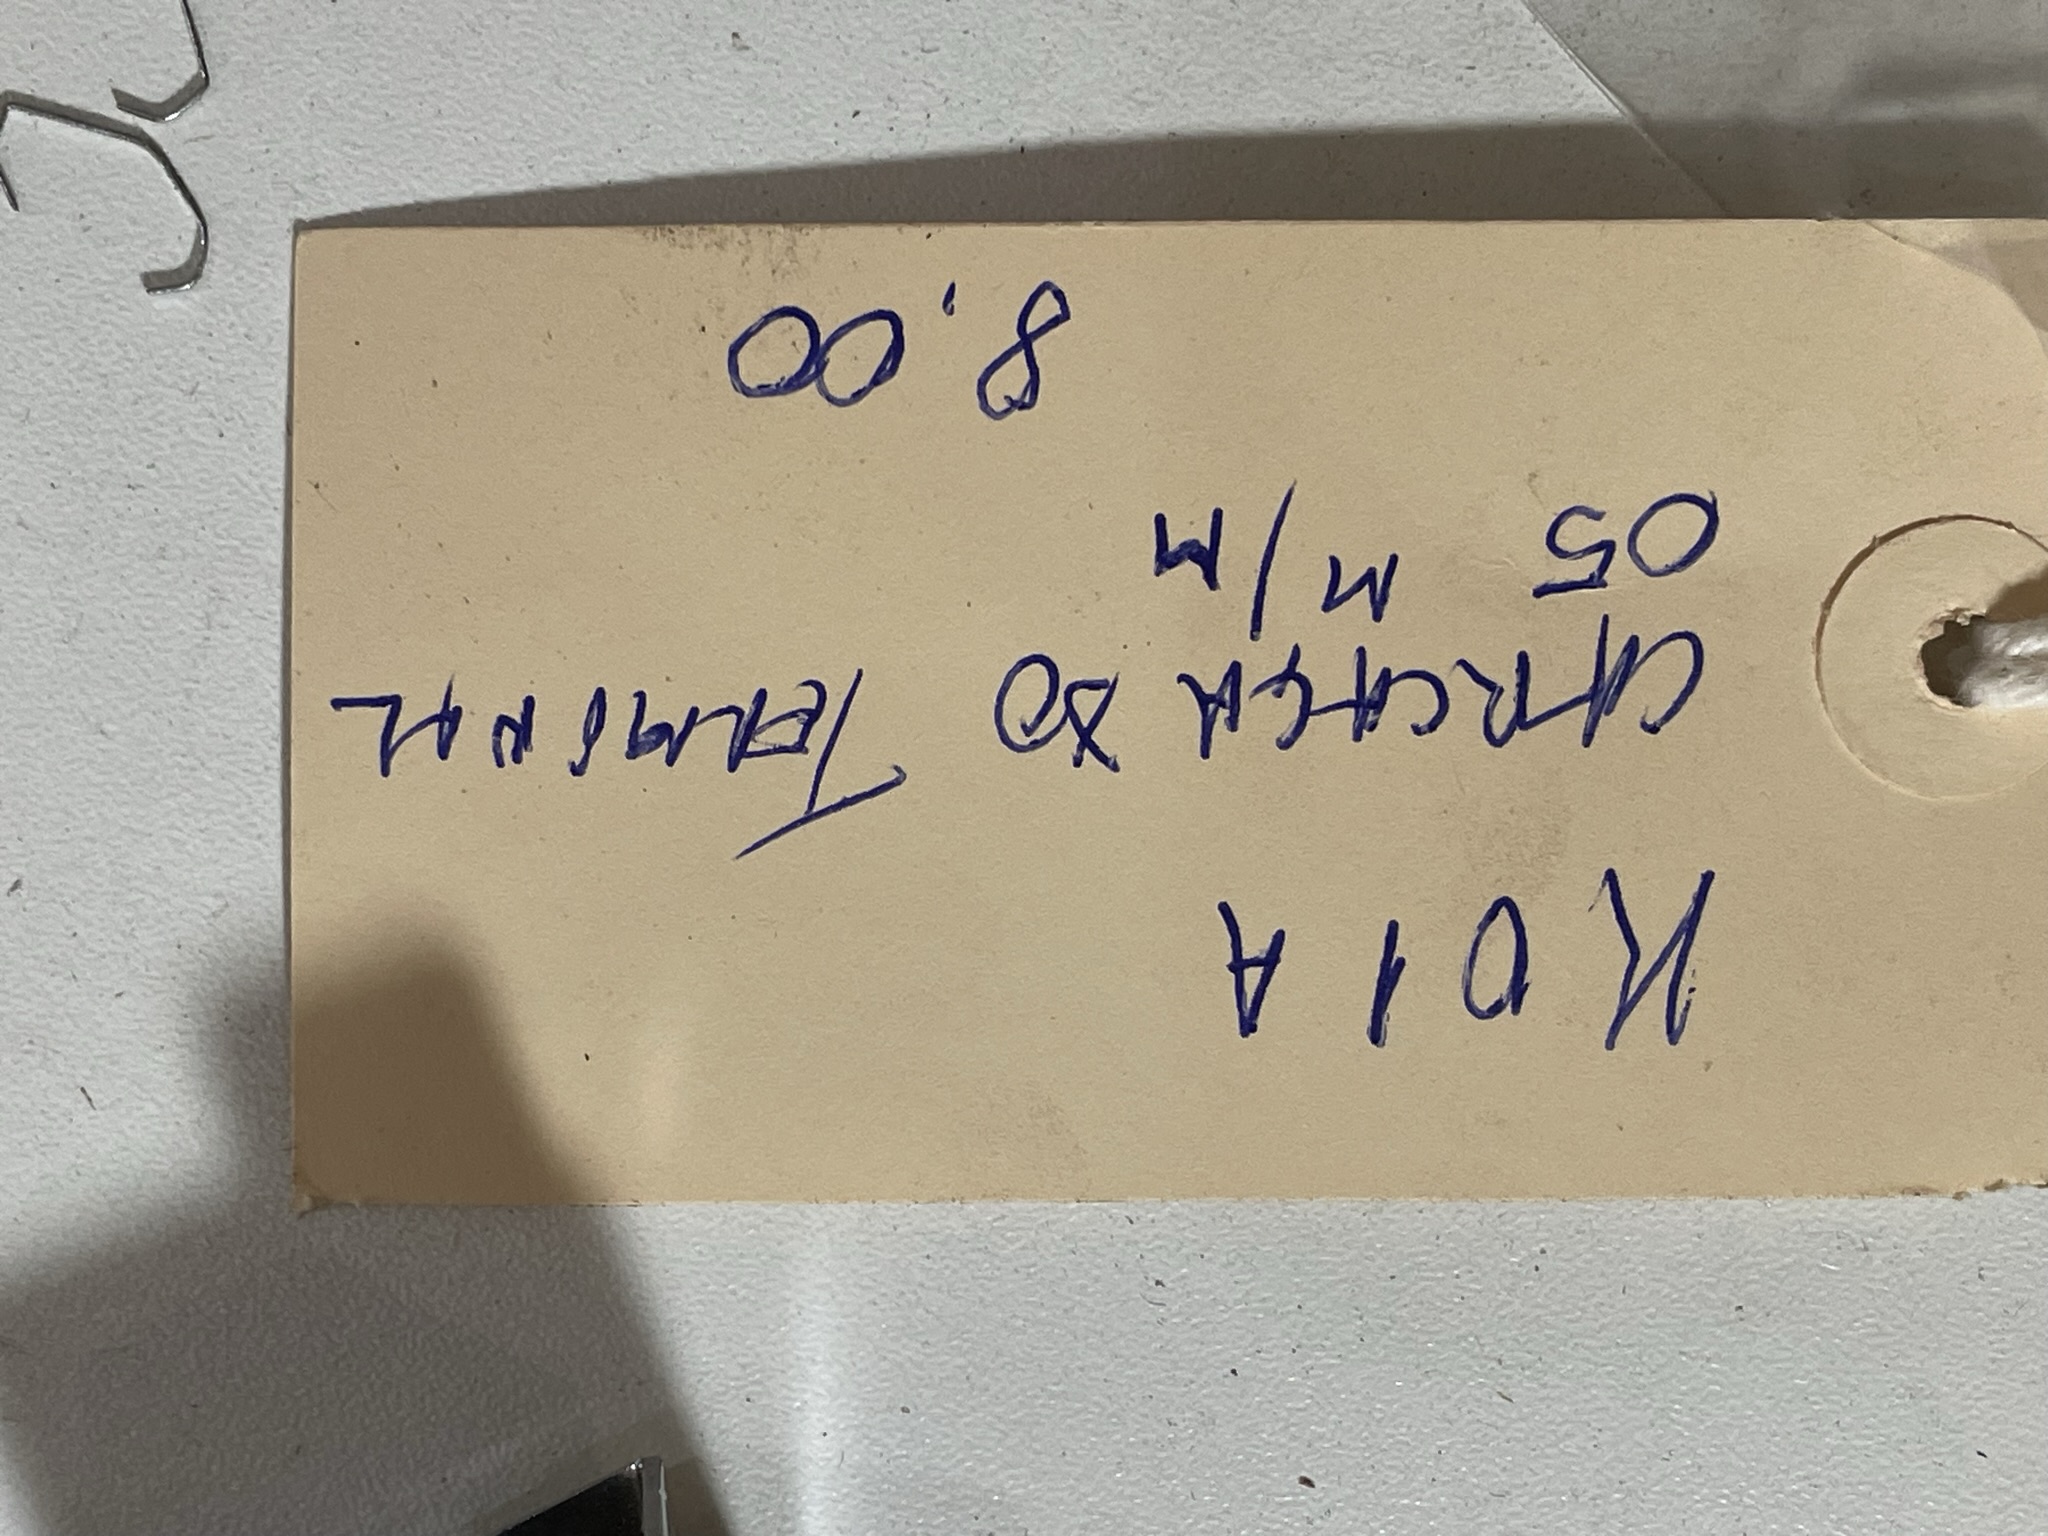 K01A
CARCAÇA DO TERMINAL
05 M/M
8,00